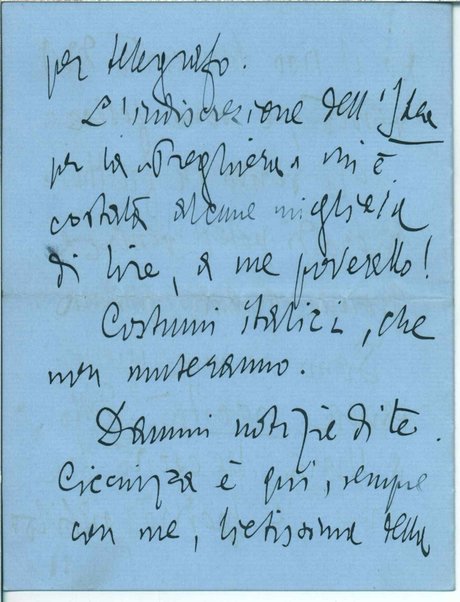 per telegrafo.
L'indiscrezione dell'Idea
per la «Preghiera» mi è
costata alcune migliaia
di lire, a me poverello!
Costumi italici, che
non muteranno.
Dammi notizie di te.
Cicciuzza è qui, sempre
con me, lietissima della